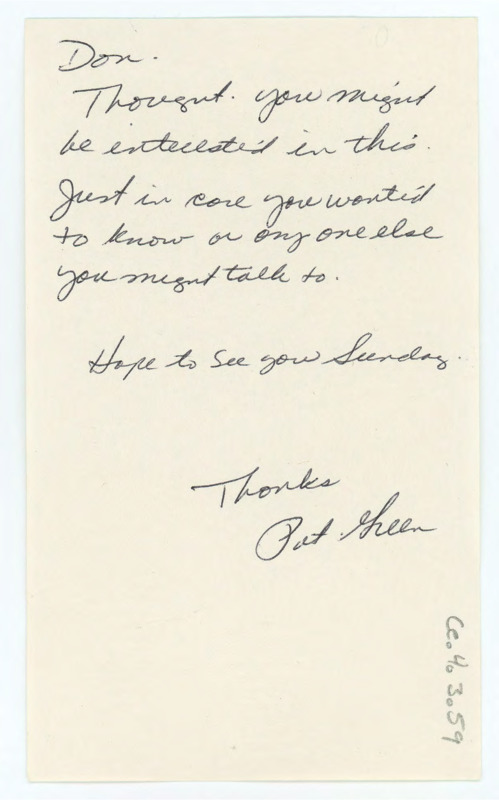 Don.
Thought you might
be interested in this.
Just in case you wanted
to know or any one else
you might talk to.
Hope to see you Sunday.
Thanks
Pat Green
Cc.4.3.59